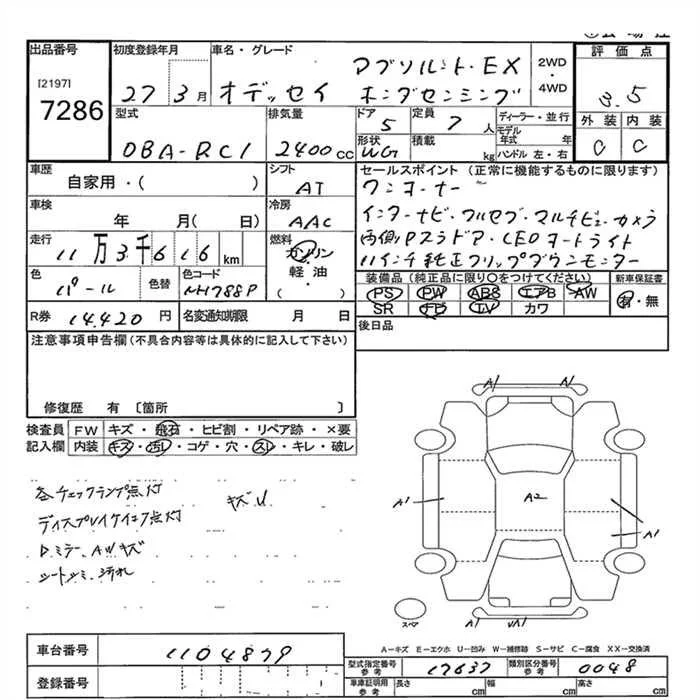 出品番号 初度登録年月 車名・グレード 評価点
[2197]
7286
27 3月 オデッセイ アブソルート・EX ホンダセンシング 2WD・4WD
3.5
型式 排気量 ドア 定員 ディーラー・並行 外装 内装
DBA-RC1 2400cc 5 7人 モデル年式 年 C C
形状 積載
WG kg ハンドル 左・右
車歴 シフト セールスポイント (正常に機能するものに限ります)
自家用・( ) AT ワンオーナー
車検 冷房
年 月( 日) AAC インターナビ・フルセグ・マルチビューカメラ
走行 燃料 両側Pスライドア・LEDヘッドライト
11万3千616km ガソリン 11インチ純正フリップダウンモニター
軽油・( )
色 色替 色コード 装備品 (純正品に限り○をつけてください) 新車保証書
パール NH788P PS PW ABS エアB AW 有・無
SR ナビ TV カワ
R券 14,420円 名変通知期限 月 日 後日品
注意事項申告欄(不具合内容等は具体的に記入して下さい)
修復歴 有 〔箇所 〕
検査員 FW キズ・飛石・ヒビ割・リペア跡・×要
記入欄 内装 キズ・汚レ・コゲ・穴・スレ・キレ・破レ
各チェックランプ点灯 キズU
Dミラー AWキズ
A1 A1
A1 A2 A1
スペア
A-キズ E-エクボ U-凹み W-補修跡 S-サビ C-腐食 XX-交換済
車台番号 1104879
型式指定番号 参考 17637 類別区分番号 参考 0048
登録番号 車車証明用 参考 長さ cm 幅 cm 高さ cm